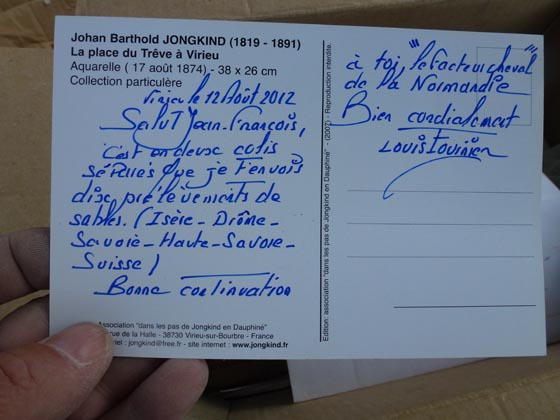 Johan Barthold JONGKIND (1819 - 1891)
La place du Trêve à Virieu
Aquarelle ( 17 août 1874) - 38 x 26 cm
Collection particulère
Virieu le 12 Août 2012
Salut Jean-François,
C'est en deux colis
séparés que je t'envois
dix prélèvements de
sables. (Isère - Drôme -
Savoie - Haute-Savoie -
Suisse)
Bonne continuation
à toi, "le facteur cheval"
de la Normandie
Bien cordialement
Louis Tournier
Edition: association "dans les pas de Jongkind en Dauphiné" - (2007) - Reproduction interdite.
Association "dans les pas de Jongkind en Dauphiné"
rue de la Halle - 38730 Virieu-sur-Bourbre - France
jongkind@free.fr - site internet : www.jongkind.fr